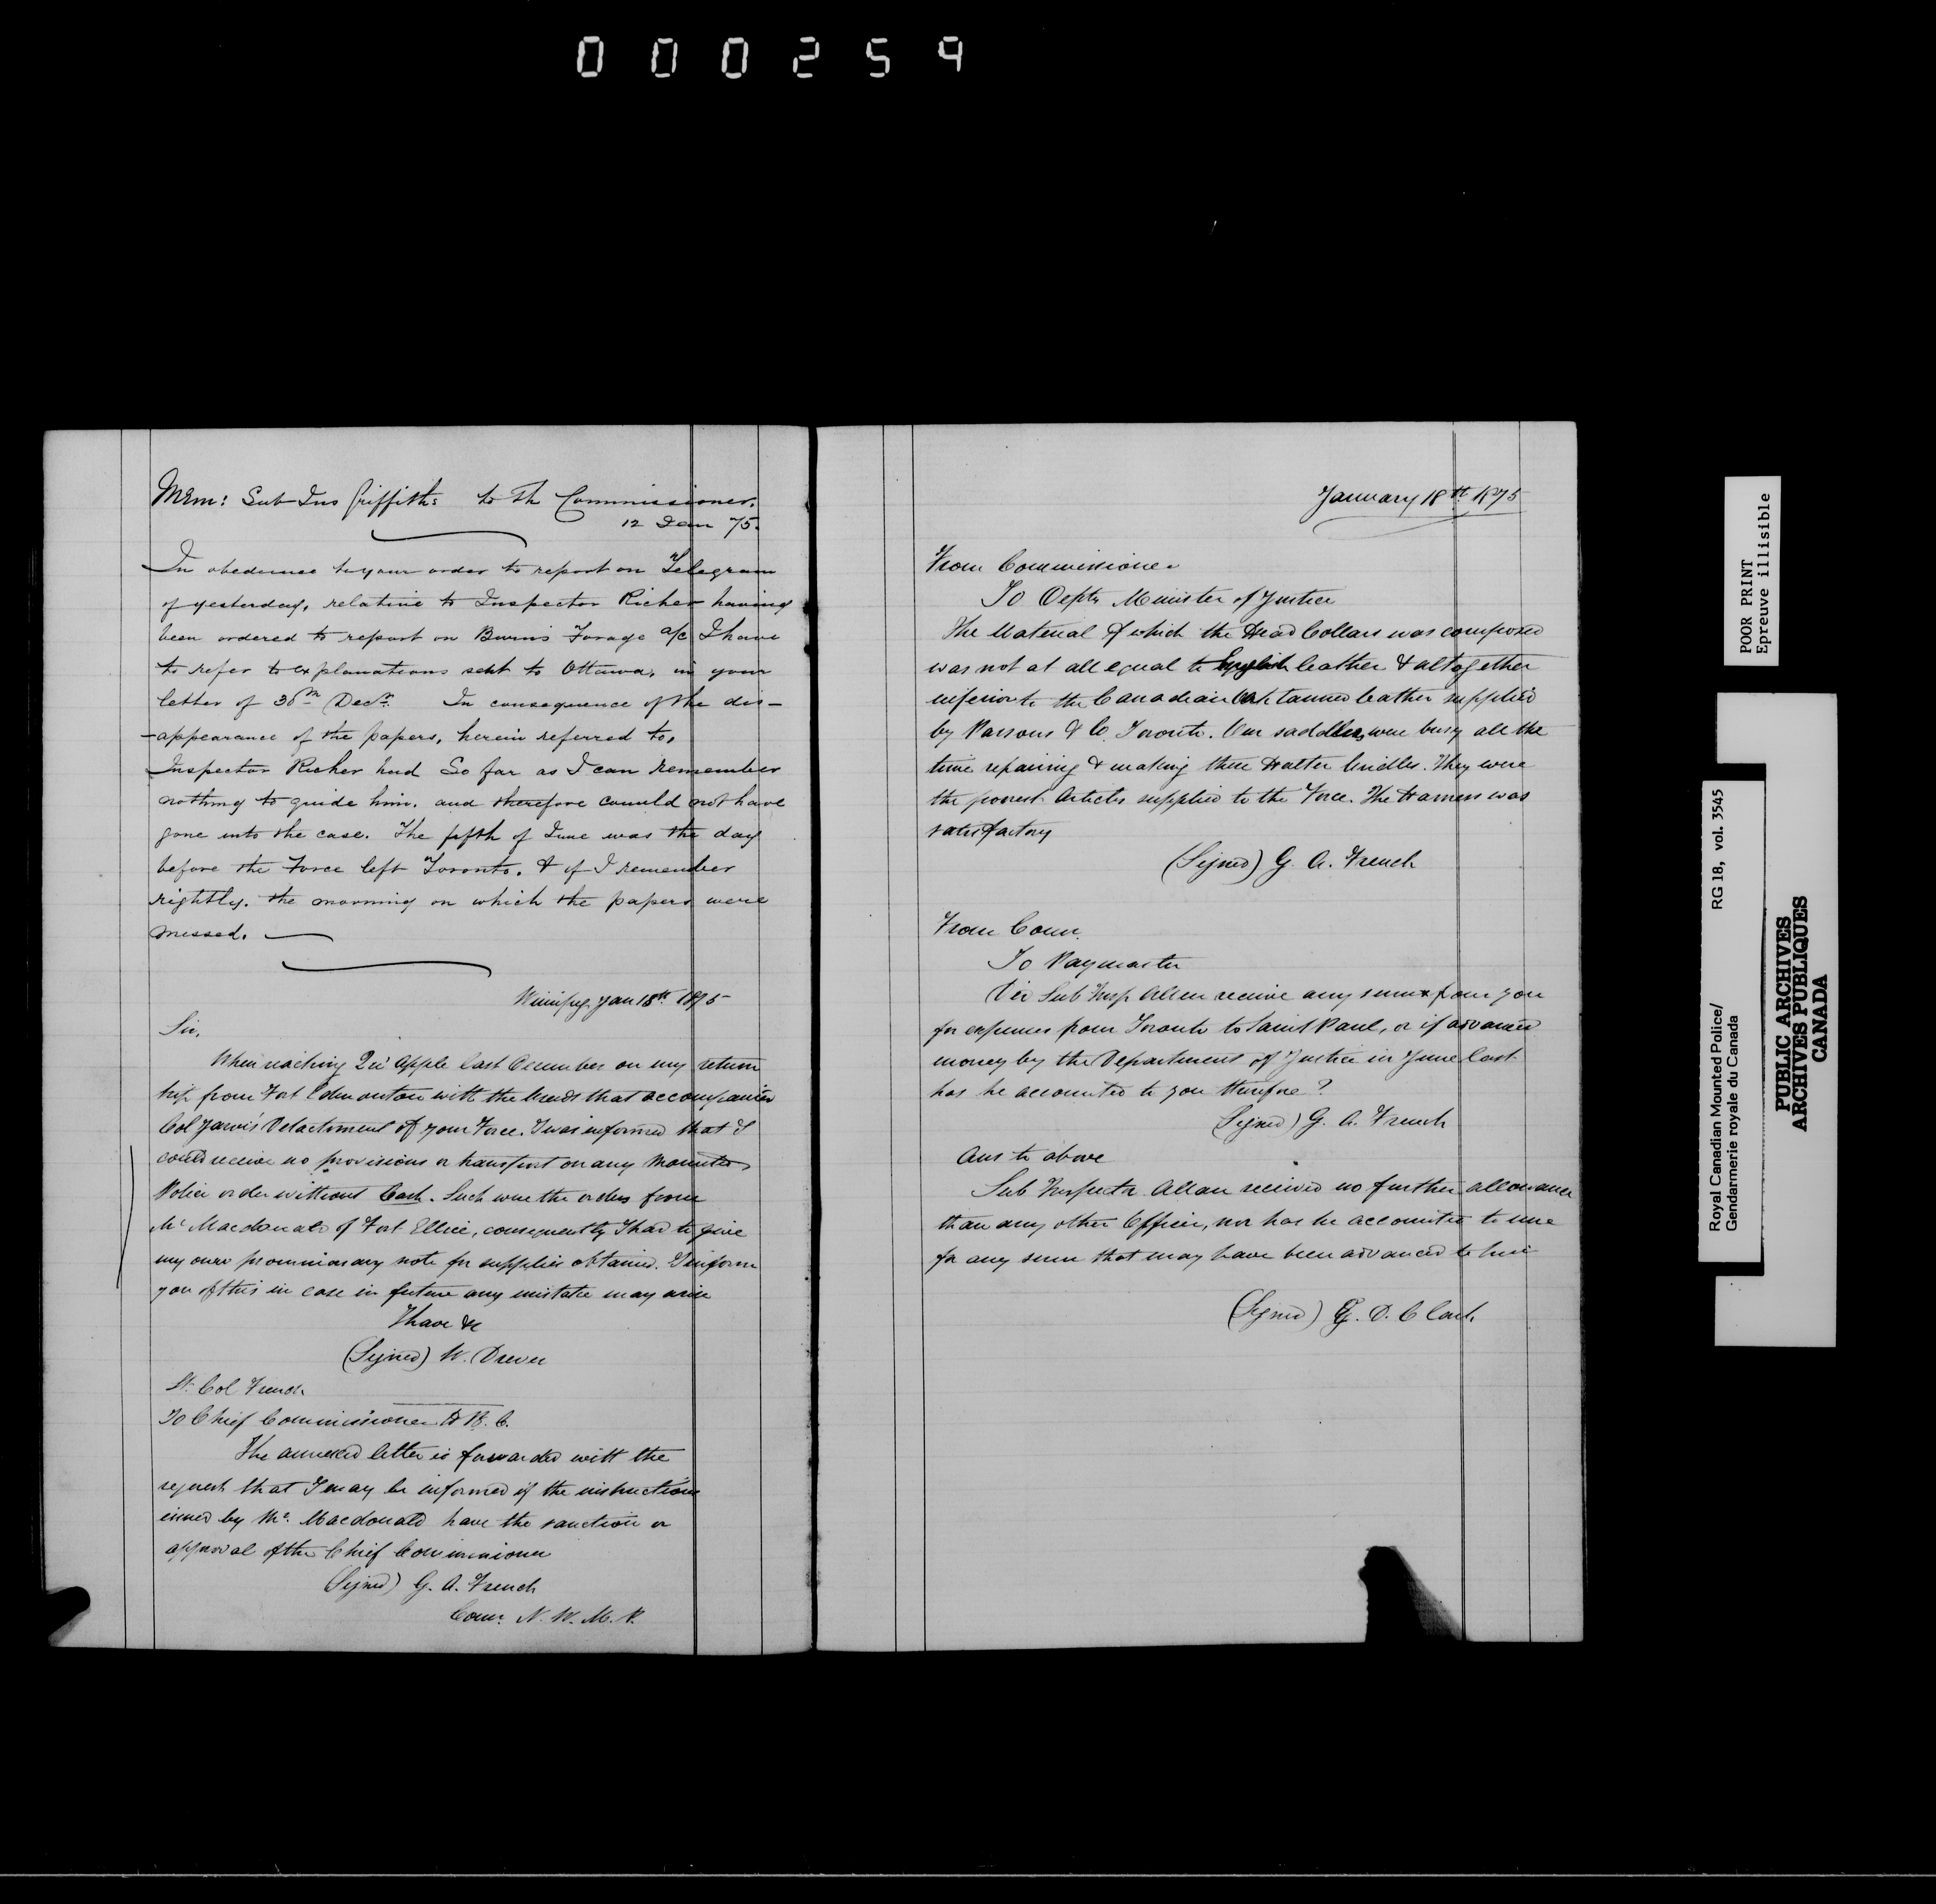 000259
Mem: Sub-Ins Griffiths to Th Commissioner.
12 Jan 75.
In obedience to your order to report on Telegram
of yesterday, relative to Inspector Richer having
been ordered to report on Burns Forage a/c I have
to refer to explanations sent to Ottawa, in your
letter of 30th Decr. In consequence of the dis-
-appearance of the papers, herein referred to,
Inspector Richer had So far as I can remember
nothing to guide him. and therefore could not have
gone into the case. The fifth of June was the day
before the Force left Toronto. & if I remember
rightly. the morning on which the papers were
missed.
Winnipeg Jan 18th 1875
Sir,
When reaching Qu' Apple last December on my return
trip from Fort Edmonton with the that accompanied
Col Jarvis' Detachment of your Force. I was informed that I
could receive no provisions or transport on any Mounted
Police order without Cash. Such were the orders from
Mr Macdonald of Fort Ellice, consequently I had to give
my own prommiasary note for supplies obtained. I inform
you of this in case in future any mistake may arise
I have &c
(Signed) W. Drever
Lt. Col French
To Chief Commissioner H B. C.
The annexed letter is forwarded with the
request that I may be informed if the instructions
issued by Mr. Macdonald have the sanction or
approval of the Chief Commissioner
(Signed) G. A. French
Comr. N. W. M. P.
January 18th 1875
From Commissioner
To Depty Minister of Justice
The Material of which the Head Collars was composed
was not at all equal to English leather & altogether
inferior to the Canadian Oak tanned leather supplied
by Parsons & Co Toronto. Our saddlers were busy all the
time repairing & making these Halter bridles. They were
the poorest Articles supplied to the Force. The Harness was
satisfactory
(Signed) G. A. French
From Comr.
To Paymaster
Did Sub Insp Allan receive any sum from you
for expenses from Toronto to Saint Paul, or if advanced
money by the Department of Justice in June last
has he accounted to you therefore?
(Signed) G. A. French
Ans to above
Sub Inspectr Allan received no further allowance
than any other Officer, nor has he accounted to me
for any sum that may have been advanced to him
(Signed) G. D. Clark
POOR PRINT
Epreuve illisible
Royal Canadian Mounted Police/ RG 18, vol. 3545
Gendarmerie royale du Canada
PUBLIC ARCHIVES
ARCHIVES PUBLIQUES
CANADA